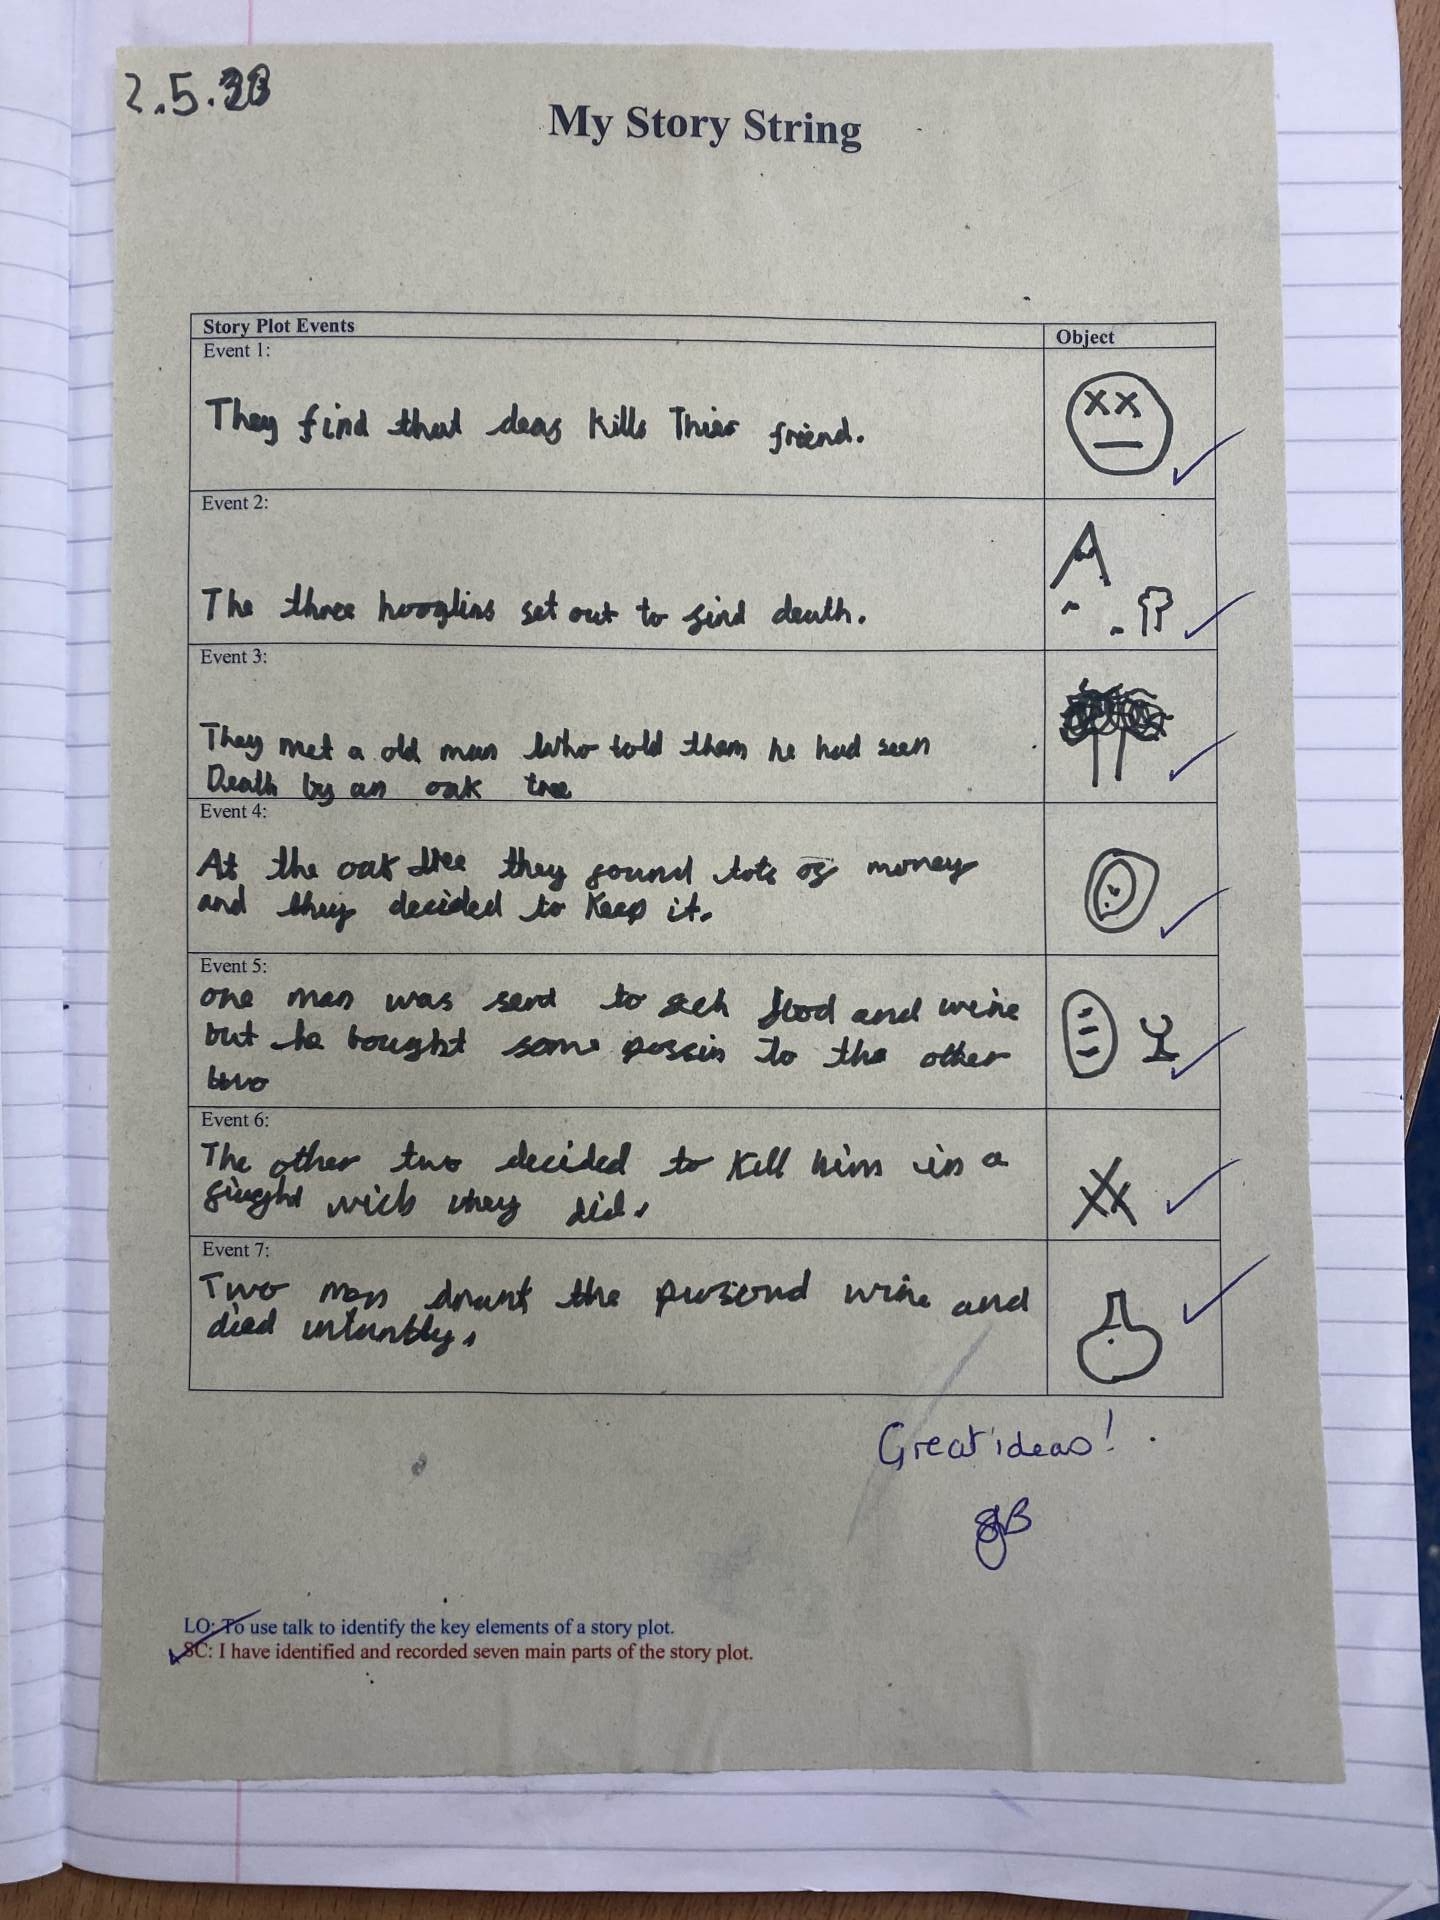 2.5.23
My Story String
Story Plot Events
Object
Event 1:
They find that deas kills Thier friend.
Event 2:
The three hooglins set out to find death.
Event 3:
They met a old man who told them he had seen
Death by an oak tree
Event 4:
At the oak tree they found lots of money
and they decided to keep it.
Event 5:
one man was send to food and wine
but he bought some to the other
two
Event 6:
The other two decided to kill him in a
wich they did.
Event 7:
Two men the wine and
died
Great ideas!
LO: To use talk to identify the key elements of a story plot.
SC: I have identified and recorded seven main parts of the story plot.